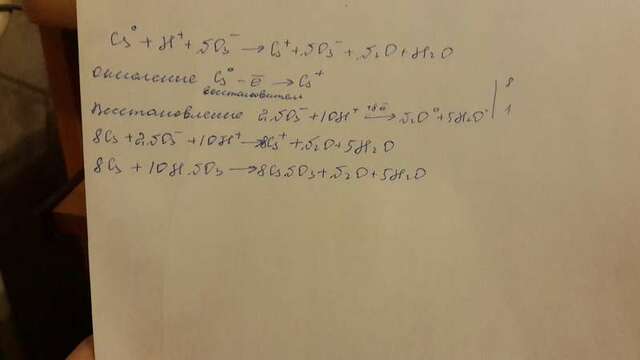 Cs⁰ + H⁺ + NO₃⁻ → Cs⁺ + NO₃⁻ + N₂O + H₂O
Окисление Cs⁰ - ē → Cs⁺ | 8
восстановитель
Восстановление 2NO₃⁻ + 10H⁺ +8ē → N₂O⁰ + 5H₂O | 1
8Cs + 2NO₃⁻ + 10H⁺ → 8Cs⁺ + N₂O + 5H₂O
8Cs + 10HNO₃ → 8CsNO₃ + N₂O + 5H₂O